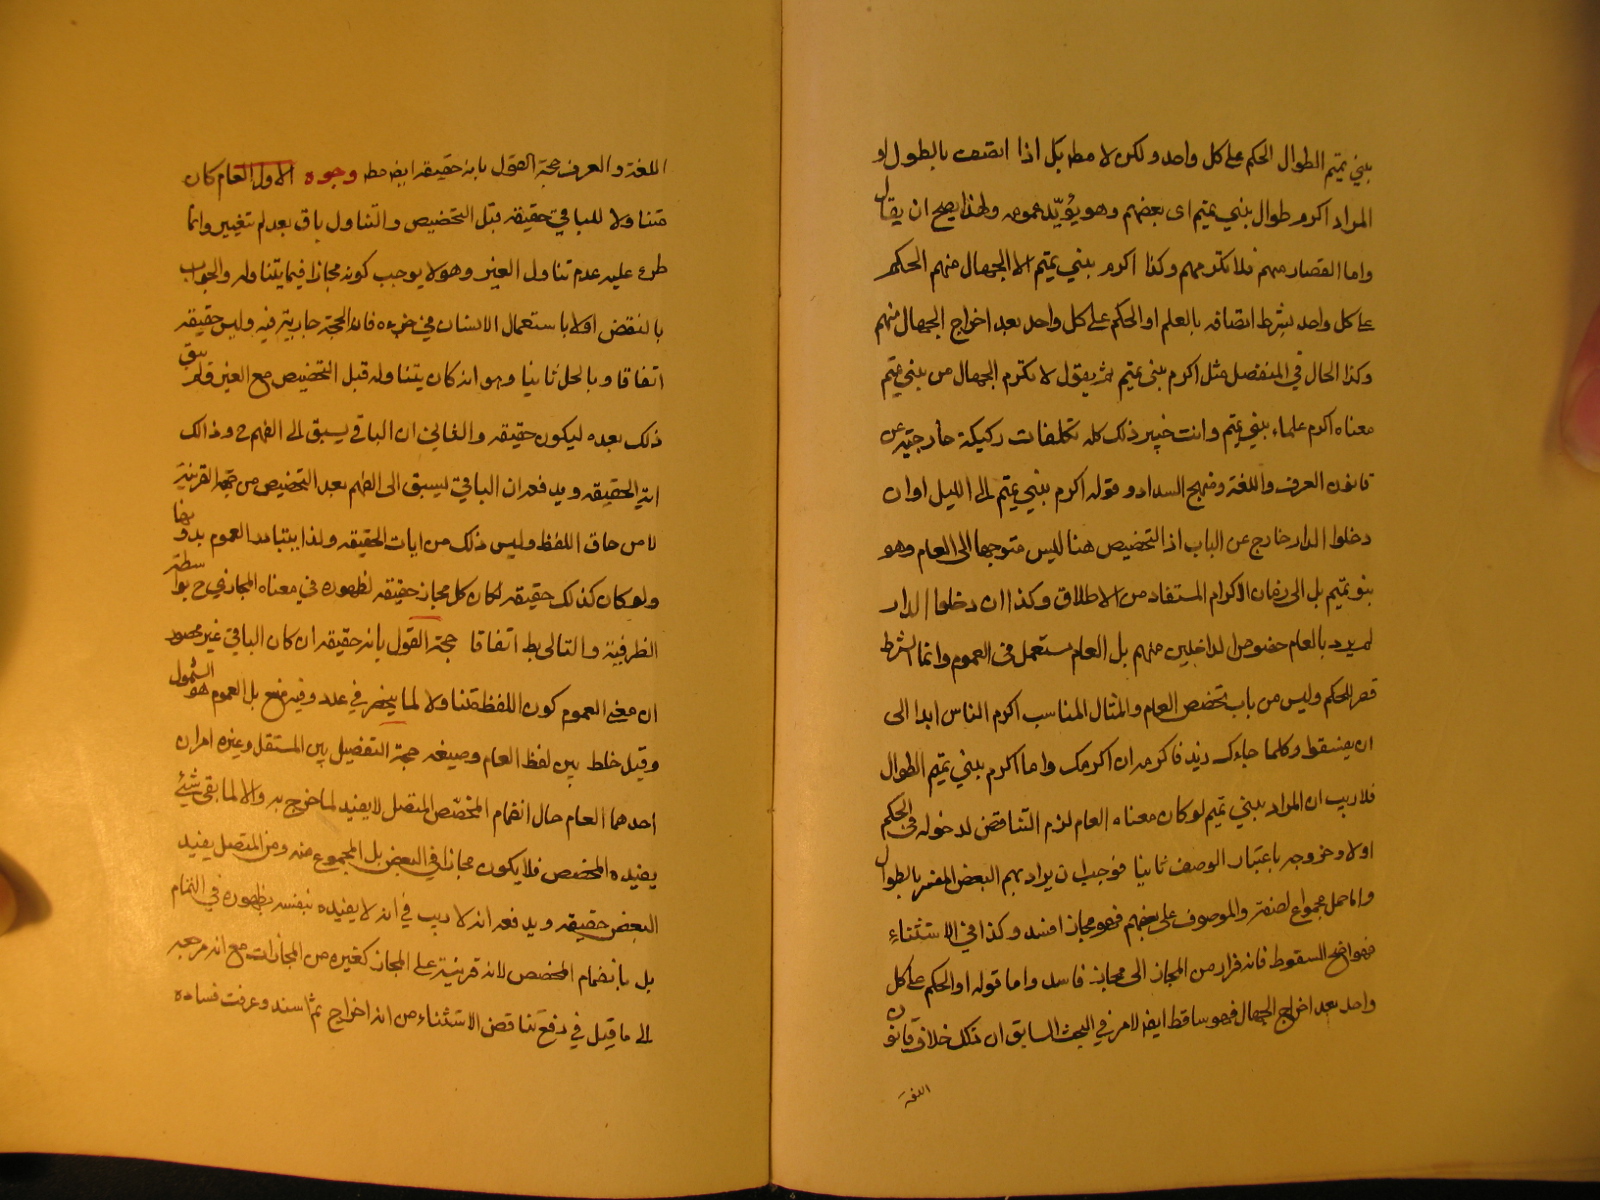 بني تميم الطوال الحكم على كل واحد ولكن لا مط بل اذا اتصف بالطول او
المراد اكرم طوال بني تميم اى بعضهم وهو يؤيّد عمومه ولهذا يصح ان يقال
واما القصار منهم فلا تكرمهم وكذا اكرم بني تميم الا الجهال منهم الحكم
على كل واحد بشرط اتصافه بالعلم او الحكم على كل واحد بعد اخراج الجهال منهم
وكذا الحال في المنفصل مثل اكرم بنى تميم ثم يقول لا تكرم الجهال من بني تميم
معناه اكرم علماء بني تميم وانت خبير ذلك كله تكلفات ركيكة خارجة عن
قانون العرف واللغة ومنهج السداد وقوله اكرم بني تميم الى الليل او ان
دخلوا الدار خارج عن الباب اذ التخصيص هنا ليس متوجها الى العام وهو
بنو تميم بل الى زمان الاكرام المستفاد من الاطلاق وكذا ان دخلوا الدار
لم يرد بالعام خصوص الداخلين منهم بل العام مستعمل في العموم وانما الشرط
قصر للحكم وليس من باب تخصيص العام والمثال المناسب اكرم الناس ابدا الى
ان يفسقوا وكلما جاءك زيد فاكرمه ان اكرمك واما اكرم بني تميم الطوال
فلا ريب ان المراد ببني تميم لو كان معناه العام لزم التناقض لدخوله في الحكم
اولا وخروجه باعتبار الوصف ثانيا فوجب ان يراد بهم البعض المفسر بالطوال
واما حمل مجموع الصفة والموصوف على بعضهم فهو مجاز افسد وكذا في الاستثناء
فهو اضح السقوط فانه فرار من المجاز الى مجاز فاسد واما قوله او الحكم على كل
واحد بعد اخراج الجهال فهو ساقط ايض لامر في البحث السابق ان ذلك خلاف قانون
اللغة
اللغة والعرف حجة القول بانه حقيقه ايض مط وجوه الاول العام كان
متناولا للباقي حقيقه قبل التخصيص والتناول باق بعد لم تغيير وانما
طرء عليه عدم تناول الغير وهو لا يوجب كونه مجازا فيما يتناوله والجواب
بالنقض اولا باستعمال الانسان في جزءه فان الحجة جارية فيه وليس حقيقه
اتفاقا وبالحل ثانيا وهو انه كان يتناوله قبل التخصيص مع الغير فلم يبق
ذلك بعده ليكون حقيقه والثاني ان الباقي يسبق الى الفهم ح وذالك
اية الحقيقه ويدفعه ان الباقي يسبق الى الفهم بعد التخصيص من جهه القرينة
لا من حاق اللفظ وليس ذلك من ايات الحقيقه ولذا يتبادر العموم بدونها
ولو كان كذلك حقيقه لكان كل مجاز حقيقه لظهوره في معناه المجازي ح بواسطة
القرينة والتالى بط اتفاقا حجة القول بانه حقيقه ان كان الباقي غير محصور
ان معنى العموم كون اللفظ متناولا لما ينحصر في عدد وفيه منع بل العموم هو الشمول
وقيل خلط بين لفظ العام وصيغه حجة التفصيل بين المستقل وغيره امران
احدهما العام حال انضمام المخصّص المتصل لا يفيد لما خرج به والا لما بقى شئ
يفيده المخصص فلا يكون مجازا في البعض بل المجموع منه ومن المتصل يفيد
البعض حقيقه ويدفعه انه لا ريب في انه لا يفيده بنفسه بظهوره في التمام
بل بانضمام المخصص لانه قرينة على المجاز كغيره من المجازات مع انه مرجعه
الى ما قيل في دفع تناقض الاستثناء من انه اخراج ثم اسند وعرفت فساده